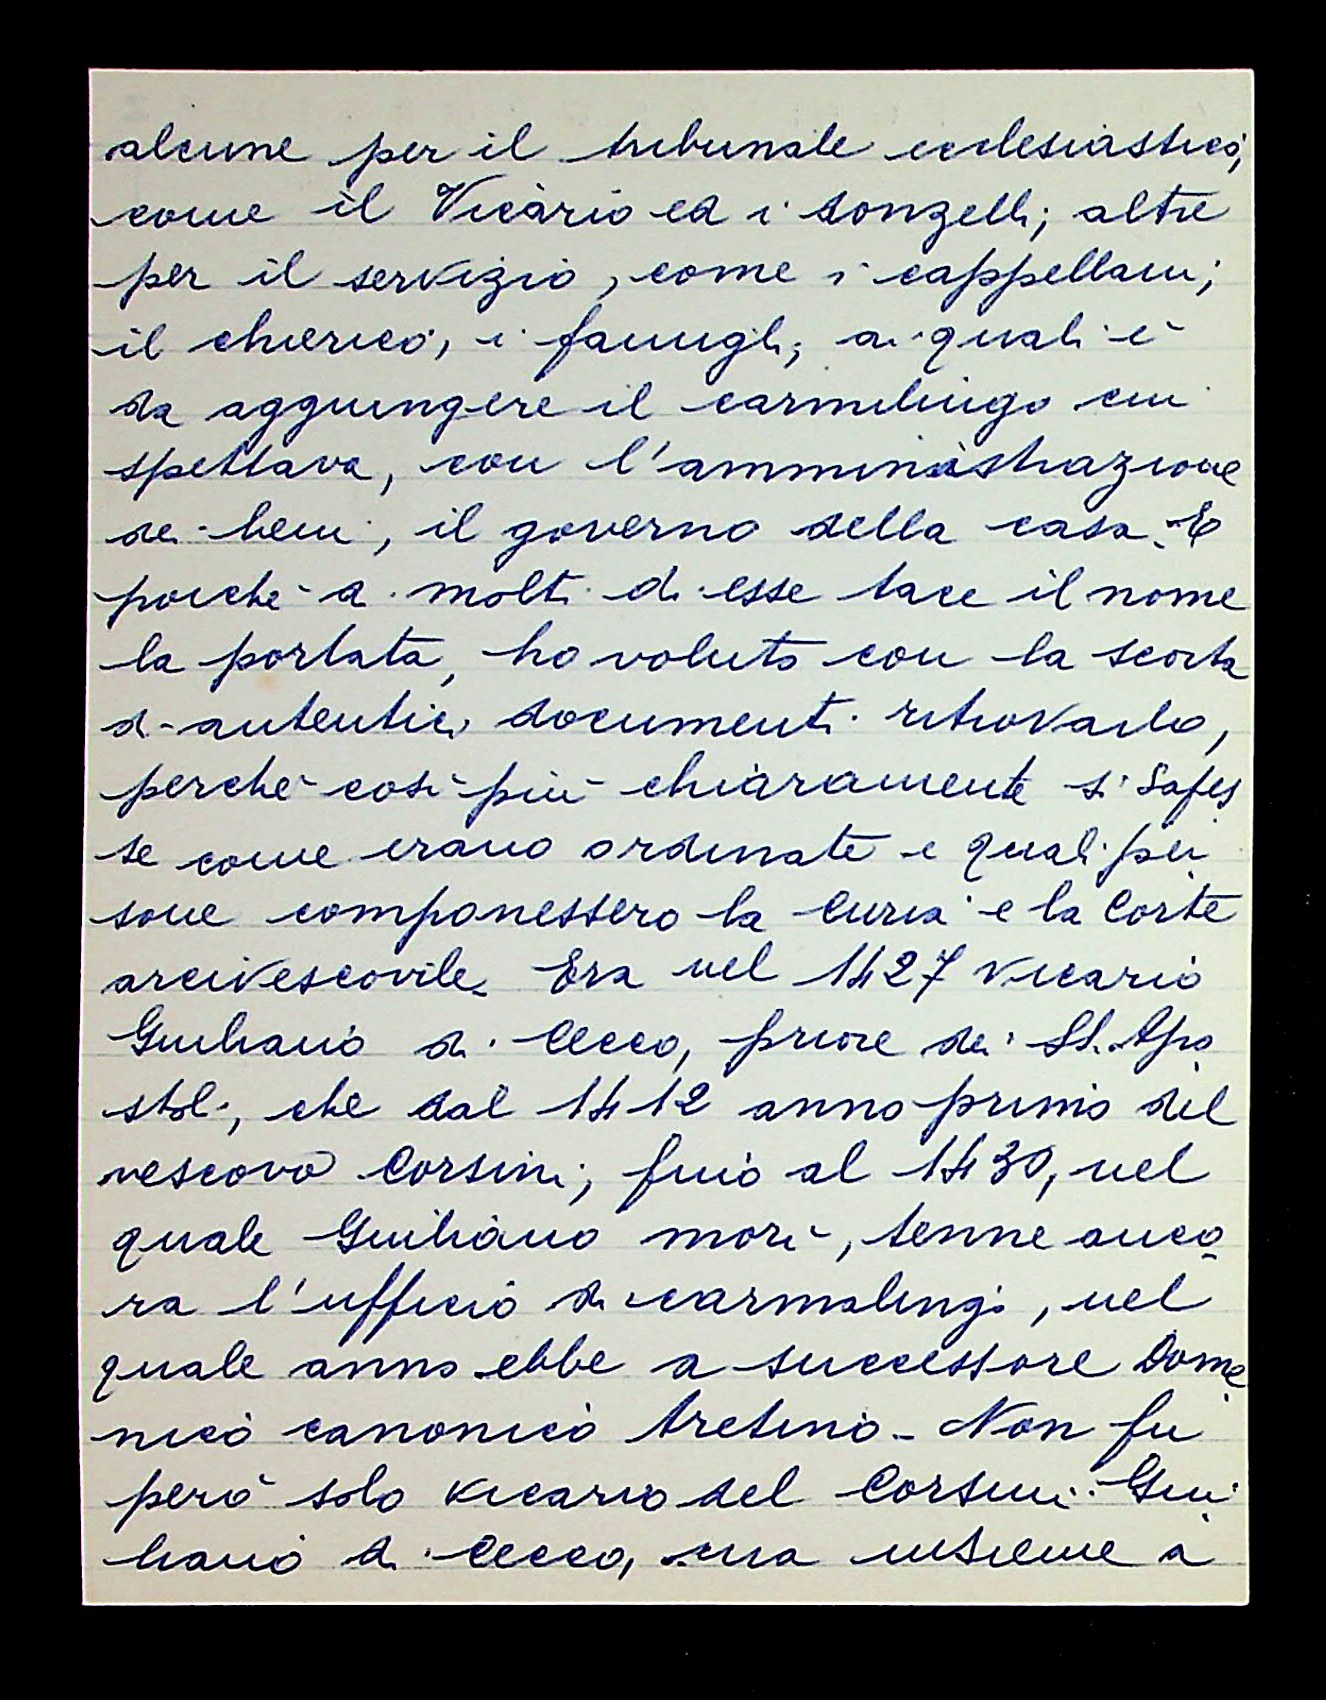 alcune per il tribunale ecclesiastico,
come il Vicario ed i donzelli; altre
per il servizio, come i cappellani;
il chierico, i famigli; ai quali è
da aggiungere il carmilingo cui
spettava, con l'amministrazione
dei beni, il governo della casa. E
poichè a molti di esse tace il nome
la portata, ho voluto con la scorta
di autentici documenti ritrovarlo,
perchè così più chiaramente si sapes
se come erano ordinate e quali per
sone componessero la Curia e la Corte
arcivescovile. Era nel 1427 vicario
Giuliano di Cecco, priore dei SS. Apo
stoli, che dal 1412 anno primo del
vescovo Corsini; fino al 1430, nel
quale Giuliano morì, tenne anco
ra l'ufficio di carmalingo, nel
quale anno ebbe a successore Dome
nico canonico Aretino. Non fu
però solo vicario del Corsini Giu
liano di Cecco, ma insieme a